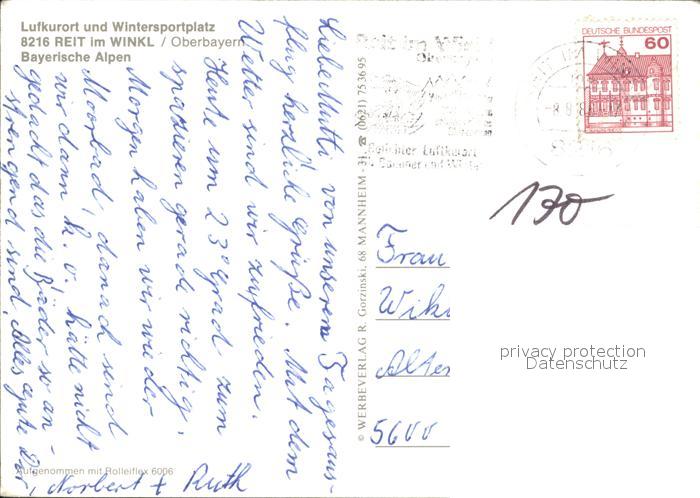 Lufkurort und Wintersportplatz
8216 REIT im WINKL / Oberbayern
Bayerische Alpen
Liebe Mutti von unserem Tagesaus-
flug herzliche Grüße. Mit dem
Wetter sind wir zufrieden.
Heute um 23° grad zum
spazieren gerade richtig.
Morgen haben wir wieder
Moorbad, danach sind
wir dann k. o., hätte nicht
gedacht das die Bäder so an-
strengend sind. Alles gute Dir,
Norbert + Ruth
Aufgenommen mit Rolleiflex 6006
© WERBEVERLAG R. Gorzinski, 68 MANNHEIM - 31, ☎ (0621) 753695
Reit im Winkl
Luftkurort
DEUTSCHE BUNDESPOST
60
130
Frau
Wiki
Alter
5600
privacy protection
Datenschutz